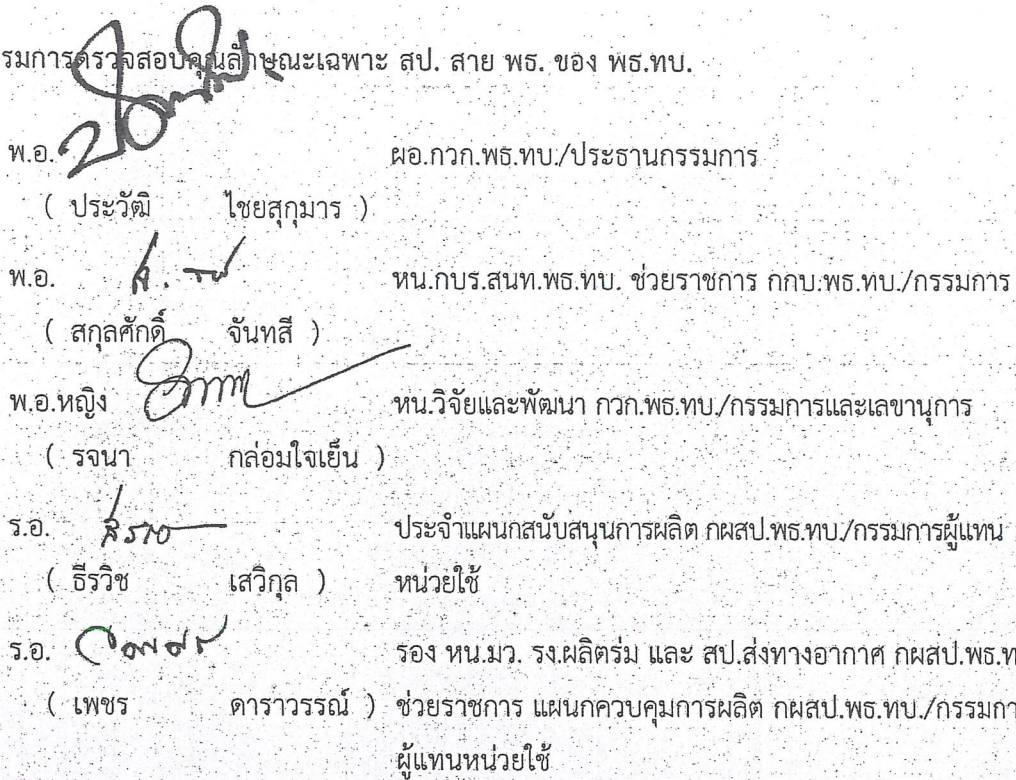 รมการตรวจสอบคุณลักษณะเฉพาะ สป. สาย พธ. ของ พธ.ทบ.
พ.อ. ผอ.กวก.พธ.ทบ./ประธานกรรมการ
( ประวัฒิ ไชยสุกุมาร )
พ.อ. หน.กบร.สนท.พธ.ทบ. ช่วยราชการ กกบ.พธ.ทบ./กรรมการ
( สกุลศักดิ์ จันทสี )
พ.อ.หญิง หน.วิจัยและพัฒนา กวก.พธ.ทบ./กรรมการและเลขานุการ
( รจนา กล่อมใจเย็น )
ร.อ. ประจำแผนกสนับสนุนการผลิต กผสป.พธ.ทบ./กรรมการผู้แทน
( ธีรวิช เสวิกุล ) หน่วยใช้
ร.อ. รอง หน.มว. รง.ผลิตร่ม และ สป.ส่งทางอากาศ กผสป.พธ.ท
( เพชร ดาราวรรณ์ ) ช่วยราชการ แผนกควบคุมการผลิต กผสป.พธ.ทบ./กรรมกา
ผู้แทนหน่วยใช้